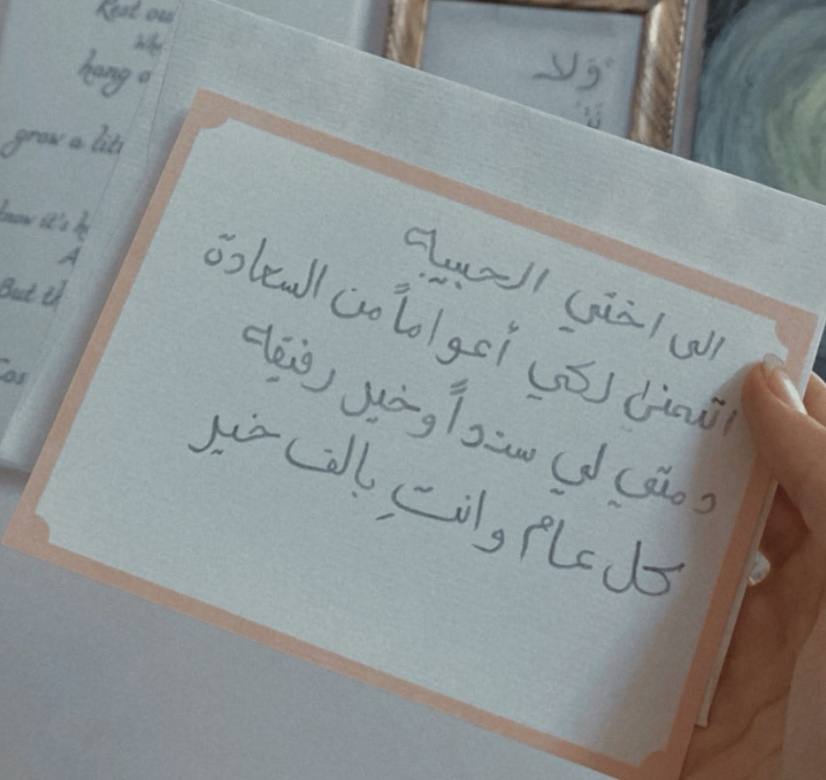 Rest
hang a
grow a litt
know it's h
A
But th
ولا
الى اختي الحبيبه
اتمنىٰ لكي أعواماً من السعادة
دمتي لي سنداً وخير رفيقه
كل عام وانتِ بالف خير